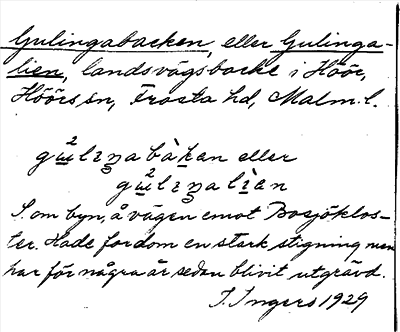 Gulingabacken, eller Gulinga-
lien, landsvägsbacke i Höör,
Höörs sn, Frosta hd, Malm. l.
gɯ²lıŋabàkan eller
gɯ²lıŋalìan
S. om byn, å vägen emot Bosjöklos-
ter. Hade fordom en stark stigning men
har för några år sedan blivit utgrävd.
I. Ingers 1929